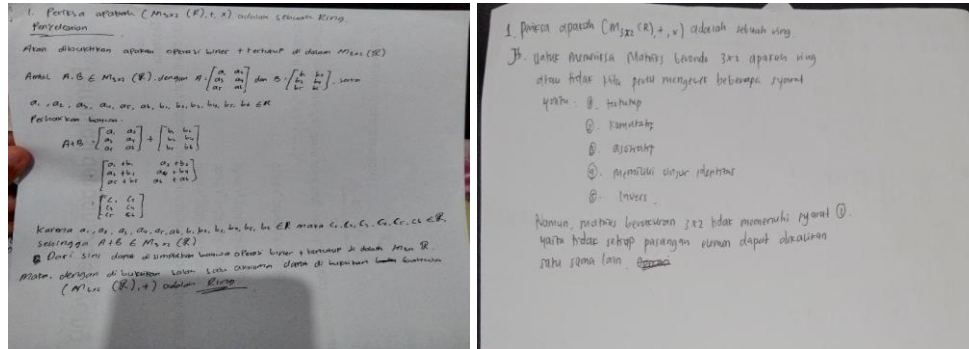 1. Periksa apakah (M3x2 (R), +, x) adalah sebuah Ring.
Penyelesaian
Akan dibuktikan apakah operasi biner + tertutup di dalam M3x2 (R)
Ambil A, B ∈ M3x2 (R). dengan A = [a1 a2 a3 a4 a5 a6] dan B = [b1 b2 b3 b4 b5 b6]. sama
a1, a2, a3, a4, a5, a6, b1, b2, b3, b4, b5, b6 ∈ R
Perhatikan bahwa.
A+B = [a1 a2 a3 a4 a5 a6] + [b1 b2 b3 b4 b5 b6]
= [a1 + b1 a2 + b2
a3 + b3 a4 + b4
a5 + b5 a6 + b6]
= [c1 c2
c3 c4
c5 c6]
Karena a1, a2, a3, a4, a5, a6, b1, b2, b3, b4, b5, b6 ∈ R maka c1, c2, c3, c4, c5, c6 ∈ R,
sehingga A+B ∈ M3x2 (R)
Dari sini dapat disimpulkan bahwa operasi biner + tertutup di dalam M3x2 R.
Maka, dengan di buktikan salah satu dapat di buktikan bahwa
(M3x2 (R), +) adalah Ring
1. Periksa apakah (M3x2 (R), +, x) adalah sebuah ring.
Jb. Untuk memeriksa Matriks berordo 3x2 apakah ring
atau tidak kita perlu mengecek beberapa syarat
yaitu : ①. tertutup
②. Komutatif
③. asosiatif
④. memiliki unsur identitas
⑤. Invers
Namun, matriks berukuran 3x2 tidak memenuhi syarat ①.
yaitu tidak setiap pasangan elemen dapat dikalikan
satu sama lain.